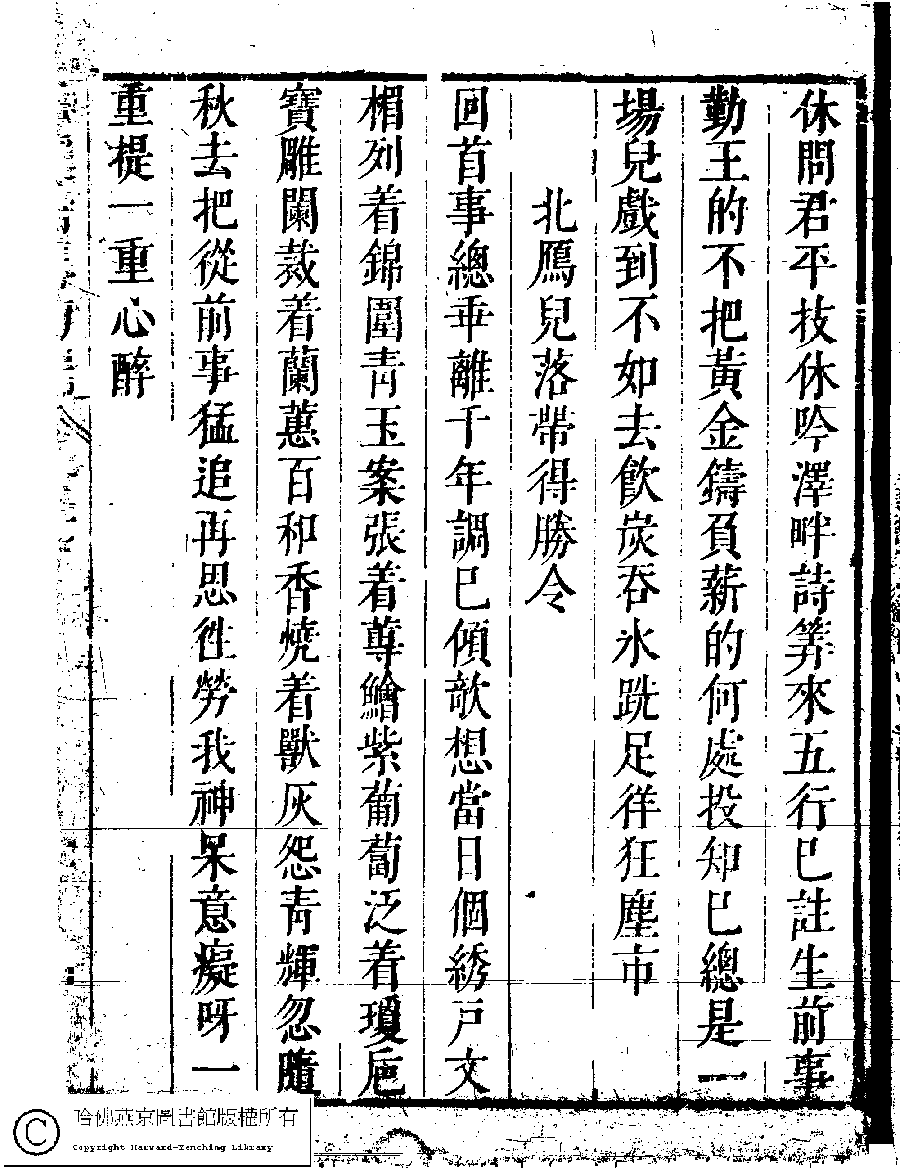 休問君平技休吟澤畔詩筭來五行已註生前事
勤王的不把黃金鑄負薪的何處投知已總是一
場兒戲到不如去飲炭吞氷跣足徉狂塵市
北鴈兒落帶得勝令
回首事總乖離千年調已傾欹想當日個綉戸文
楣列着錦圍青玉案張着蓴鱠紫葡萄泛着瓊巵
寶雕闌裁着蘭蕙百和香燒着獸灰怨青輝忽隨
秋去把從前事猛追再思徃勞我神呆意癡呀一
重提一重心醉
哈佛燕京圖書館版權所有
Copyright Harvard-Yenching Library